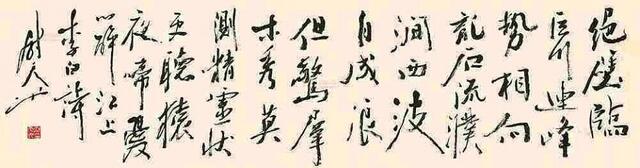 绝壁临
巨川连峰
势相向
乱石流洑
涧西波
自成浪
但惊群
木秀莫
测精灵状
更听猿
夜啼忧
心醉江上
李白诗